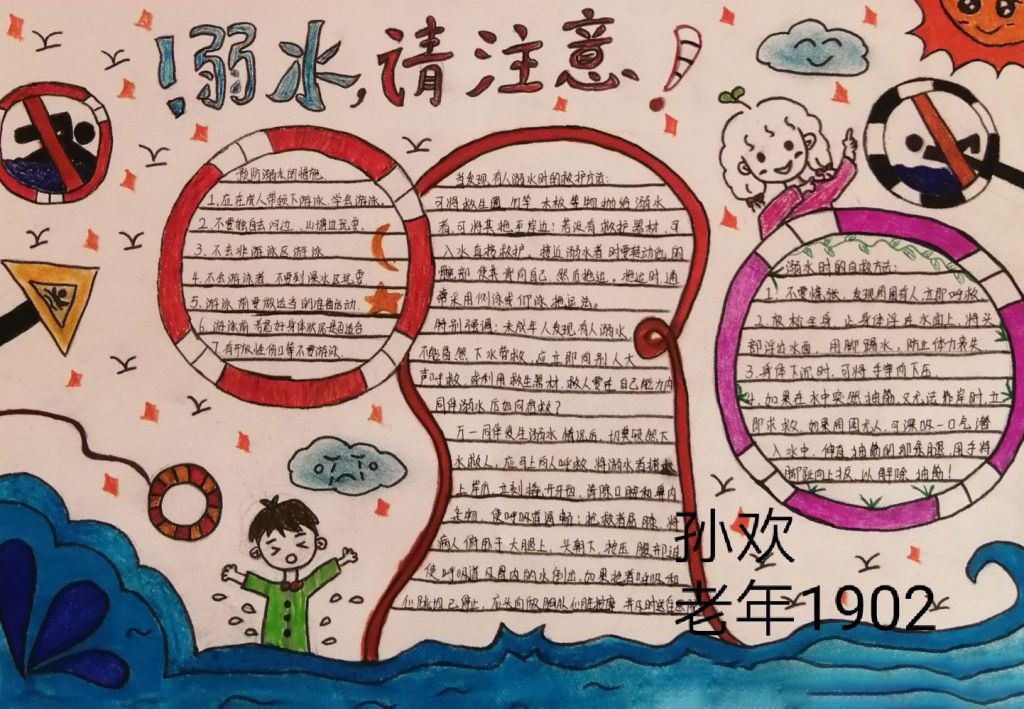 !溺水,请注意!
预防溺水的措施
1.应在成人带领下游泳,学会游泳.
2.不要独自去河边、山塘边玩耍.
3.不去非游泳区游泳
4.不会游泳者,不要到深水区玩耍
5.游泳前要做适当的准备活动
6.游泳前考虑好身体状况是否适合
7.有开放性伤口等不要游泳.
当发现有人溺水时的救护方法:
可将救生圈、竹竿、木板等物抛给溺水
者可将其拖至岸边;若没有救护器材,可
入水直接救护。接近溺水者时要转动他的
髋部,使其背向自己然后拖运。拖运时通
常采用侧泳或仰泳拖运法。
特别强调:未成年人发现有人溺水,
不能冒然下水营救,应立即向别人大
声呼救,或利用救生器材.救人要在自己能力内
同伴溺水后如何急救?
万一同伴发生溺水情况后,切莫贸然下
水救人,应马上向人呼救.将溺水者捞救
上岸后,立刻撬开牙齿,清除口腔和鼻内
杂物,使呼吸道通畅;抢救者屈膝,将
病人俯卧于大腿上,头朝下,按压腹部迫
使呼吸道及胃内的水倒出.如果抢者呼吸和
心跳均已停止,应
溺水时的自救方法:
1.不要慌张,发现周围有人立即呼救
2.放松全身,让身体浮在水面上,将头
部浮出水面,用脚踢水,防止体力丧失
3.身体下沉时,可将手掌向下压
4.如果在水中突然抽筋,又无法靠岸时,立
即求救.如果周围无人,可深吸一口气潜
入水中,伸直抽筋的那条腿,用手将
脚趾向上扳,以解除抽筋!
孙欢
老年1902